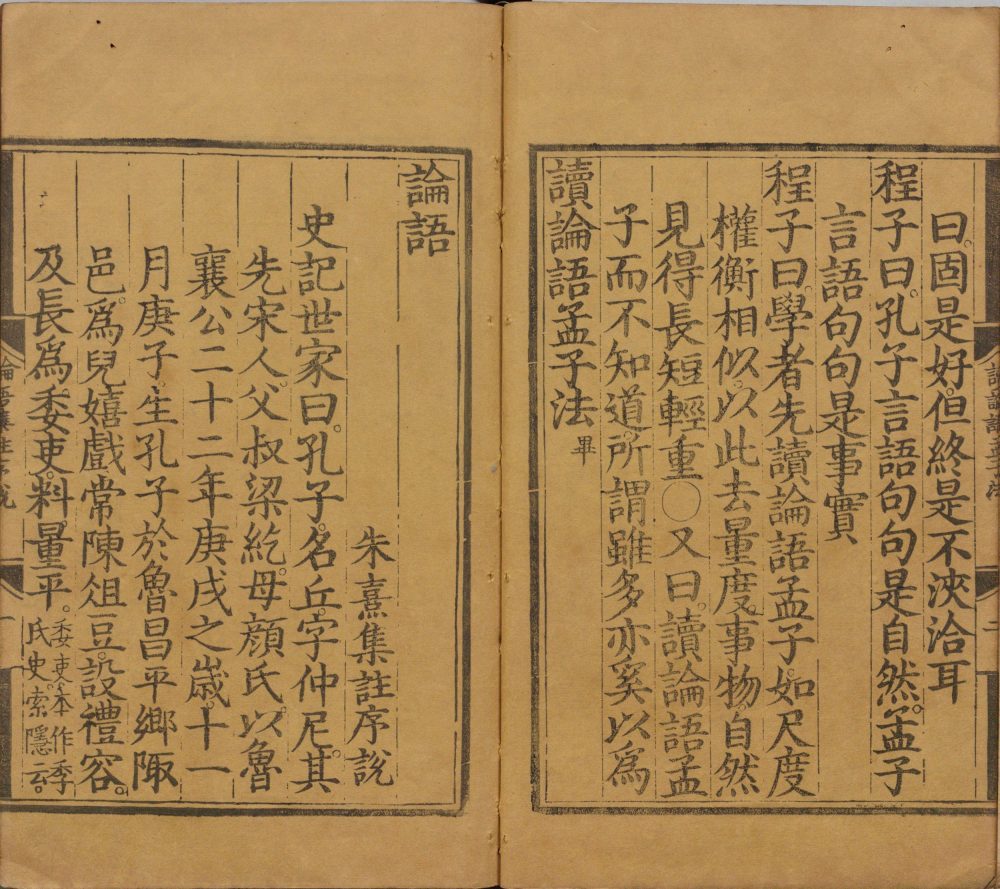 曰。固是好。但終是不浹洽耳
程子曰。孔子言語句句是自然。孟子
言語句句是事實
程子曰。學者先讀論語孟子。如尺度
權衡相似。以此去量度事物。自然
見得長短輕重〇又曰。讀論語孟
子而不知道。所謂雖多亦奚以爲
讀論語孟子法 畢
論語
朱熹集註序說
史記世家曰。孔子。名丘。字仲尼。其
先宋人。父叔梁紇。母顔氏。以魯
襄公二十二年庚戌之歲。十一
月庚子。生孔子於魯昌平鄉陬
邑。爲兒嬉戲。常陳俎豆。設禮容。
及長。爲委吏。料量平。委吏。本作季氏史。索隱云。
論語集註序說
一